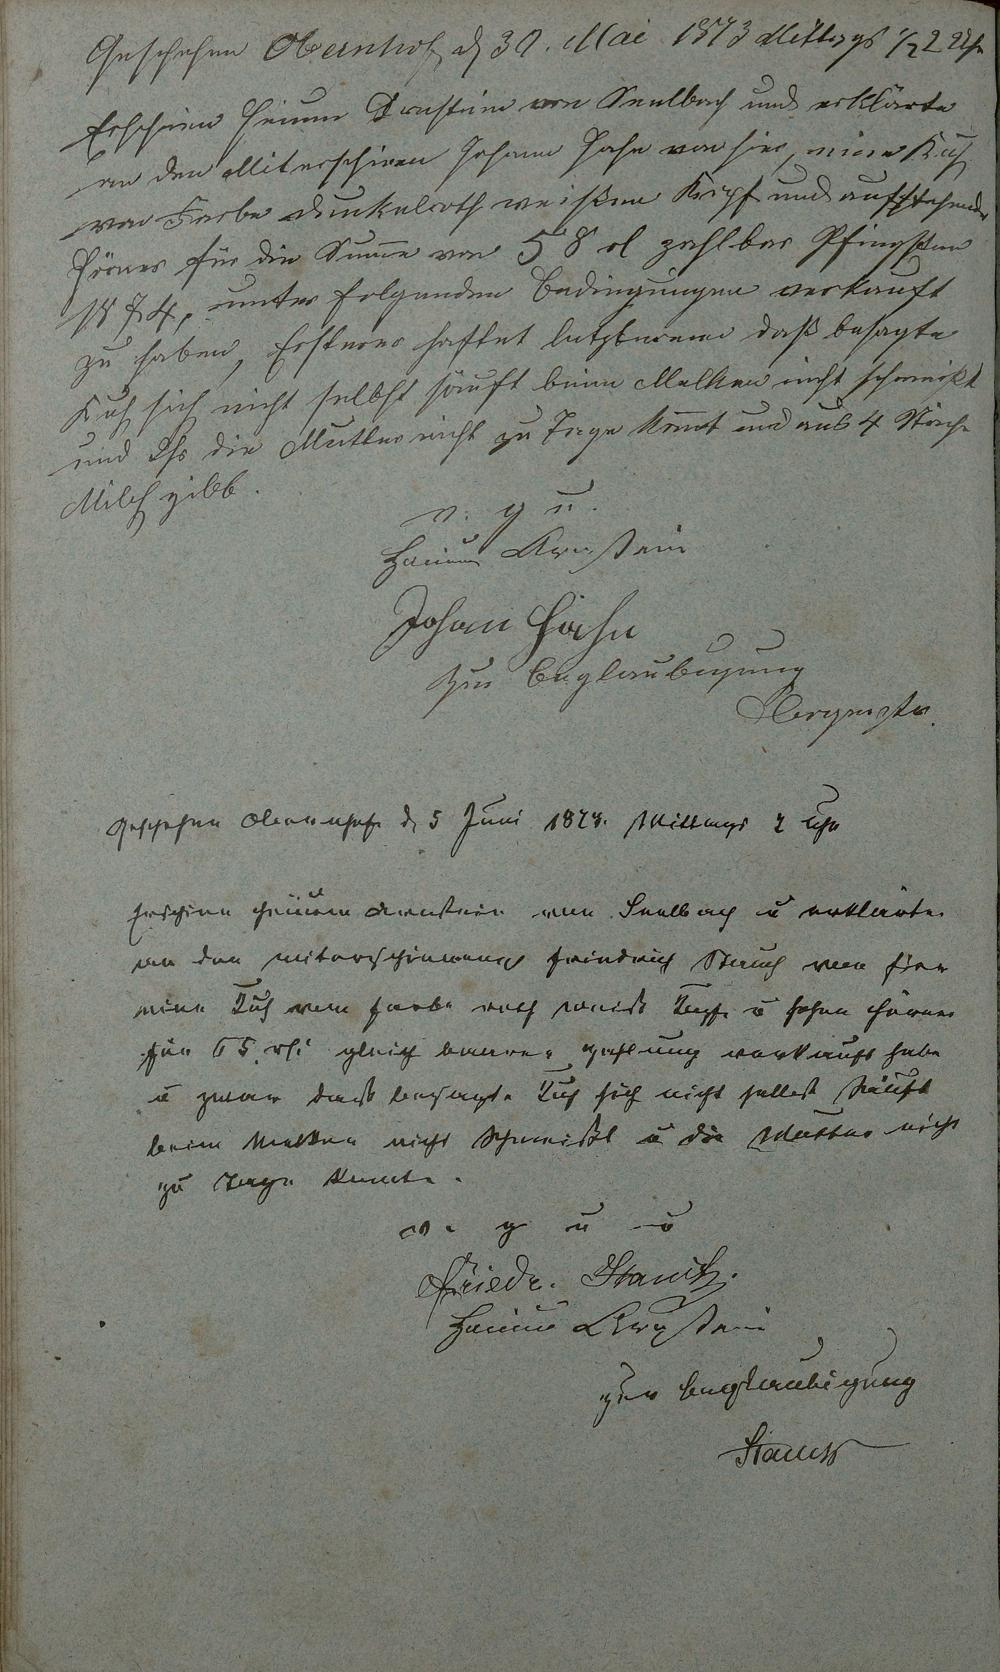 Geschehen Obernhof d 30. Mai 1873 Mittags 1/2 2 Uhr
Erschien Heium Arnstein von Seelbach und erklärte
an den Miterschinen Johann Hahn von hier, eine Kuh
von Farbe dunkelroth weißem Kopf und aufstehende
Hörner für die Summe von 58 zahlbar Pfingsten
1874, unter folgenden Bedingungen verkauft
zu haben, Ersterer haftet letzterem daß besagte
Kuh sich nicht selbst säuft beim Melken nicht schmeißt
und Ihr die Mutter nicht zu Tage kommt und aus 4 Striche
Milch gibt.
v. g u.
Heium Arnstein
Johan Hahn
Zur Beglaubigung
Geschehen Obernhof d 5 Juni 1873. Mittags 2 Uhr
Erschien Heium Arnstein von Seelbach u erklärte
an den miterschienenen Friedrich Stauch von hier
eine Kuh von Farbe roth weiß Kopf u hohen Hörner
für 65 gleich baarer Zahlung verkauft habe
u zwar daß besagte Kuh sich nicht selbst säuft
beim Melken nicht Schmeißt u die Mutter nicht
zu Tage komte.
v. g u u
Friedr. Stauch.
Heium Arnstein
zur Beglaubigung
Stauch